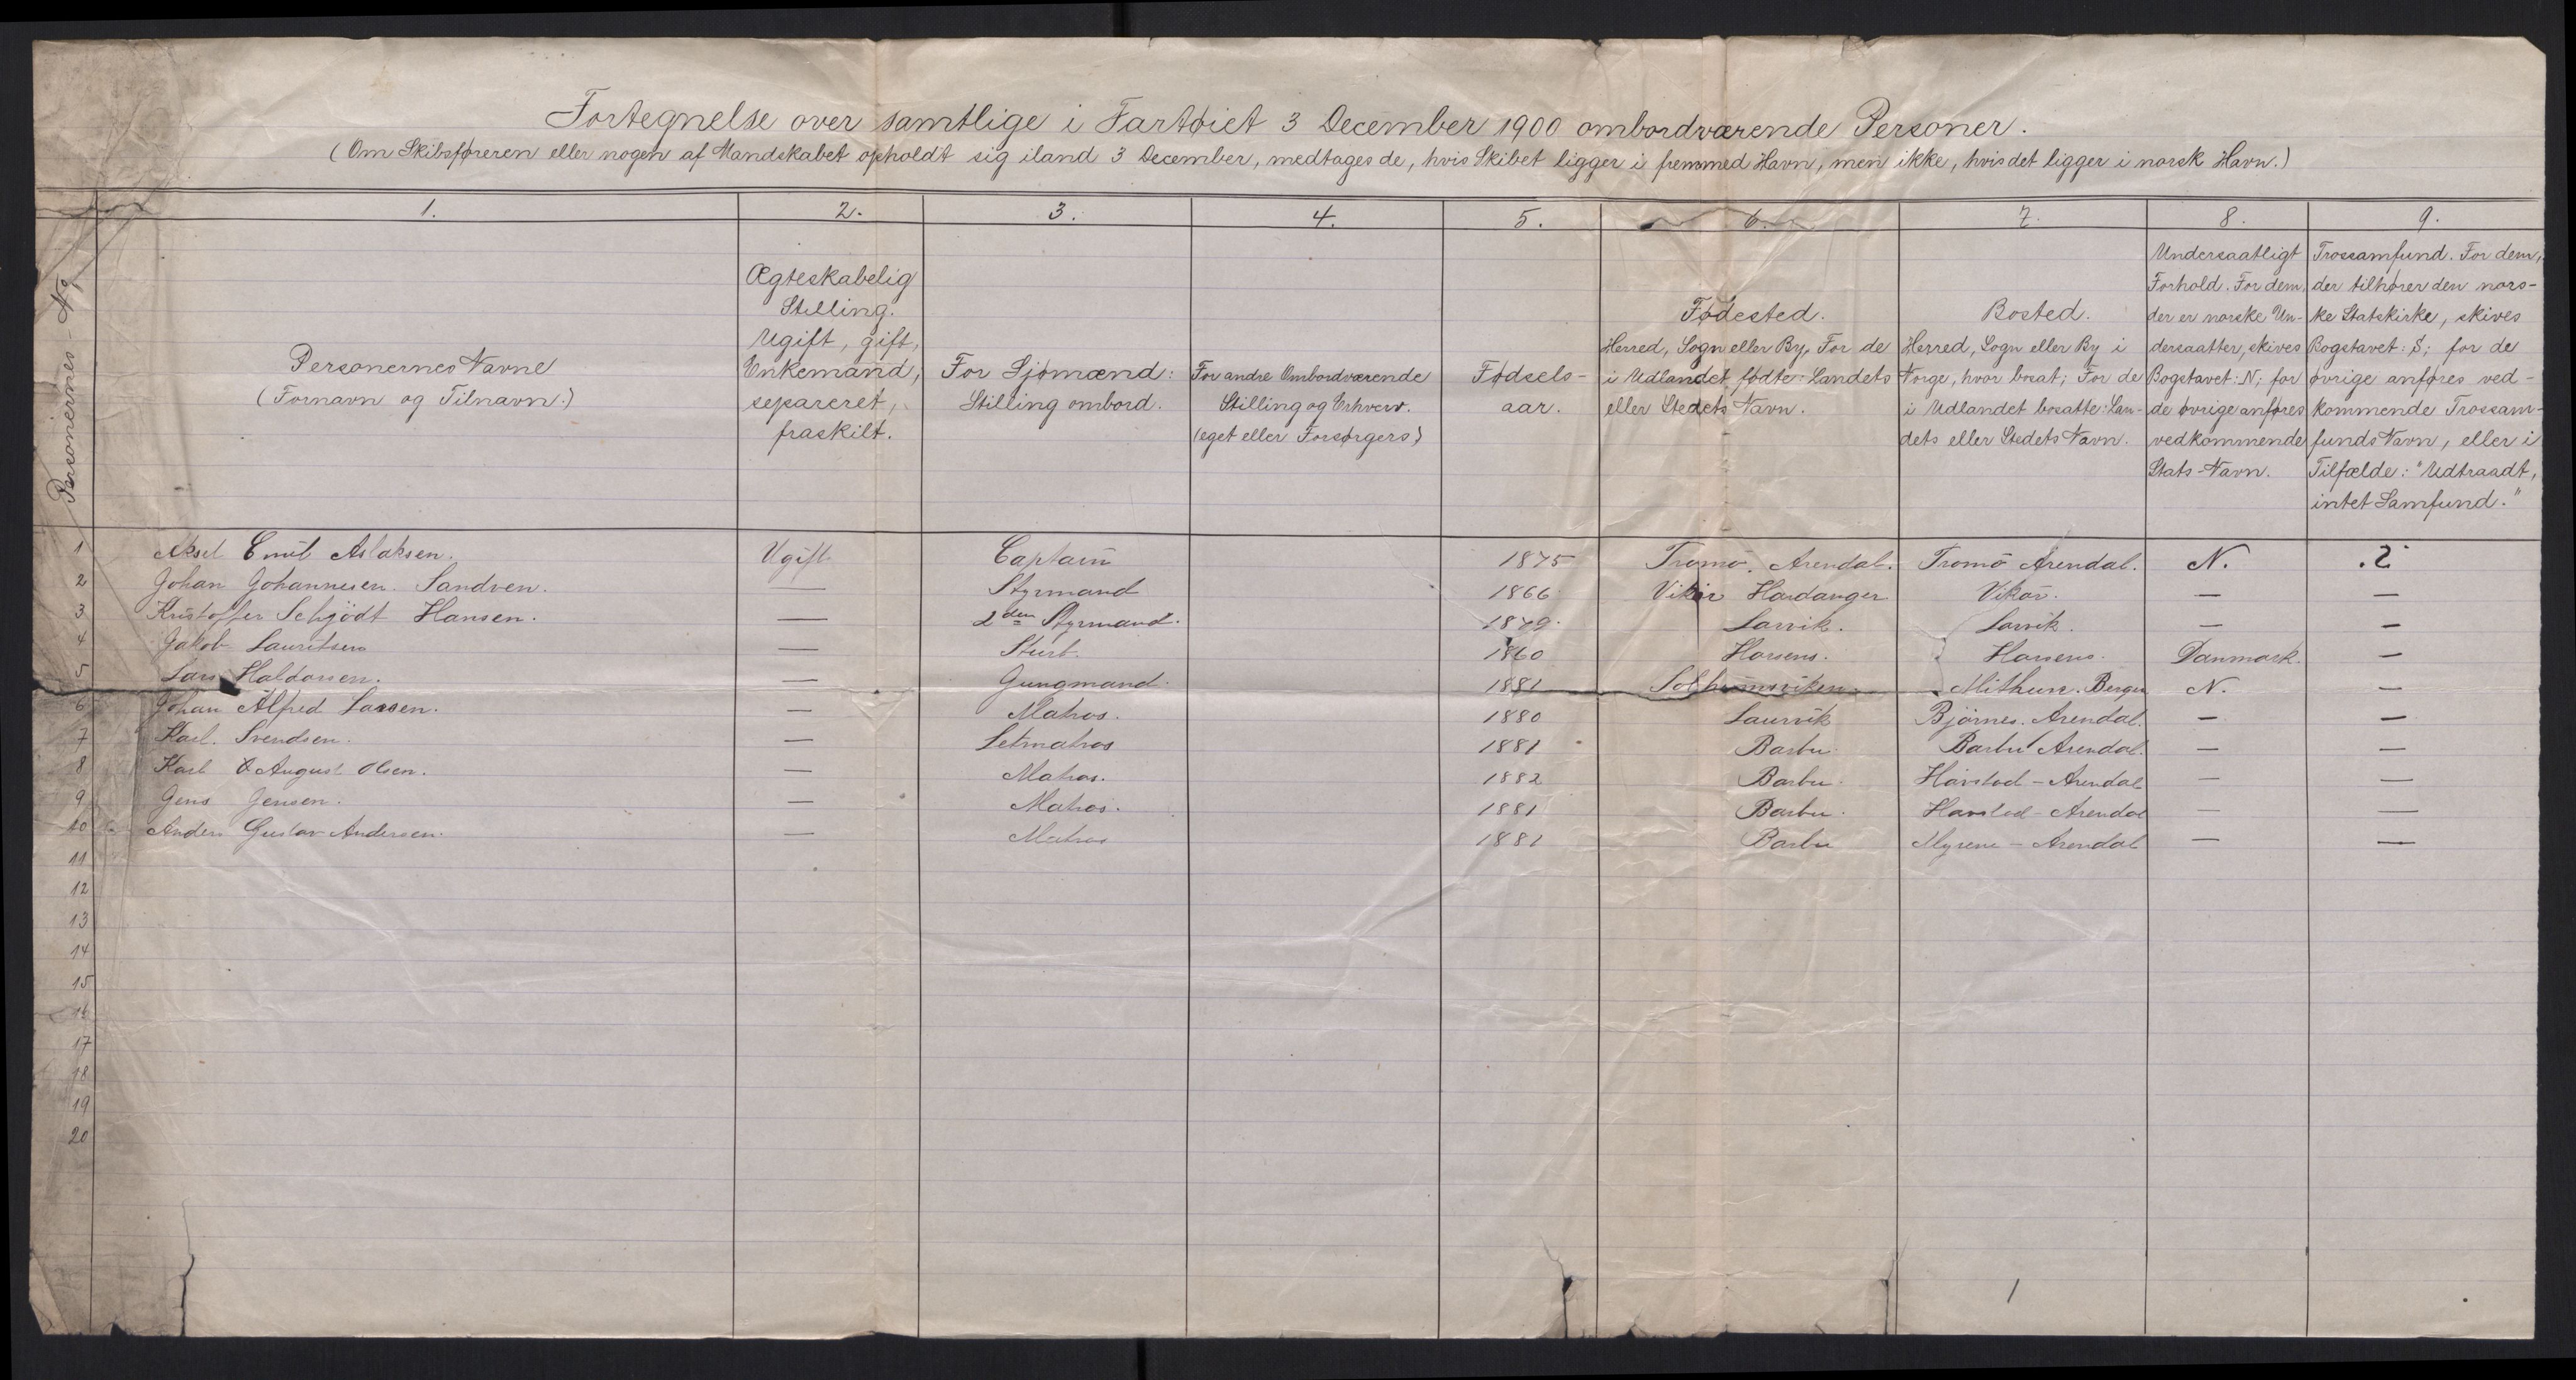 Fortegnelse over samtlige i Fartøiet 3 December 1900 ombordværende Personer.
(Om Skibsføreren eller nogen af Mandskabet opholdt sig iland 3 December, medtages de, hvis Skibet ligger i fremmed Havn, men ikke, hvis det ligger i norsk Havn.)
1. 2. 3. 4. 5. 6. 7. 8. 9.
Personernes No
Personernes Navne
(Fornavn og Tilnavn.)
Ægteskabelig
Stilling.
Ugift, gift,
Enkemand,
separeret,
fraskilt.
For Sjømænd:
Stilling ombord.
For andre Ombordværende
Stilling og Erhverv.
(eget eller Forsørgers)
Fødsels-
aar.
Fødested.
Herred, Sogn eller By. For de
i Udlandet fødte: Landets
eller Stedets Navn.
Bosted.
Herred, Sogn eller By i
Norge, hvor bosat; For de
i Udlandet bosatte: Lan-
dets eller Stedets Navn.
Undersaatligt
Forhold. For dem,
der er norske Un-
dersaatter, skives
Bogstavet: N; for
de øvrige anføres
vedkommende
Stats-Navn.
Trossamfund. For dem,
der tilhører den nors-
ke Statskirke, skives
Bogstavet: S; for de
øvrige anføres ved-
kommende Trossam-
funds Navn, eller i
Tilfælde: "Udtraadt,
intet Samfund."
1 Aksel Emil Aslaksen. Ugift Captain 1875 Tromö. Arendal. Tromö Arendal. N. S.
2 Johan Johannesen. Sandven. — Styrmand 1866 Vikör Hardanger Vikör. — —
3 Kristoffer Schjödt Hansen. — 2den Styrmand. 1879. Larvik. Larvik. — —
4 Jakob Lauritsen — Stuert. 1860 Horsens. Horsens. Danmark. —
5 Lars Haldorsen. — Jungmand. 1881 Solheimsviken. Mithun. Bergen N. —
6 Johan Alfred Larsen. — Matros. 1880 Laurvik Björnes. Arendal. — —
7 Karl. Svendsen. — Letmatros 1881 Barbu. Barbu Arendal. — —
8 Karl August Olsen. — Matros. 1882 Barbu. Harstad - Arendal — —
9 Jens Jensen. — Matros. 1881 Barbu. Harstad - Arendal — —
10 Anders Gustav Andersen. — Matros 1881 Barbu Myrene - Arendal — —
11
12
13
14
15
16
17
18
19
20